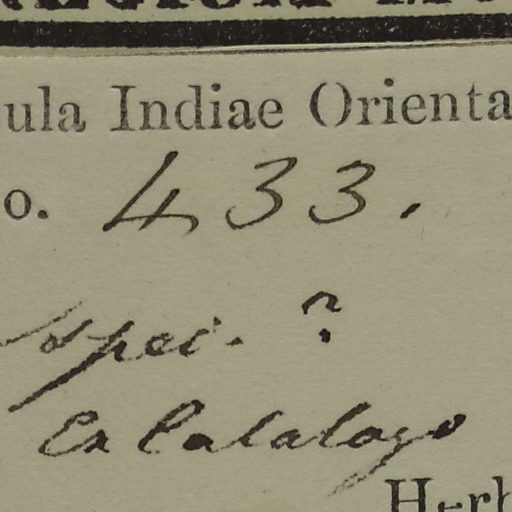 ula Indiae Orienta
o. 433.
spec. ?
Ex Catalogo
Herb